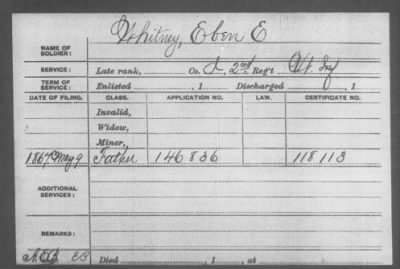 Whitney, Eben E
NAME OF SOLDIER:
SERVICE: Late rank, Co. I, 2nd Reg't Vt. Inf
TERM OF SERVICE: Enlisted , 1 Discharged , 1
DATE OF FILING. CLASS. APPLICATION NO. LAW. CERTIFICATE NO.
Invalid,
Widow,
Minor,
1867 May 9 Father 146836 118113
ADDITIONAL SERVICES:
REMARKS:
Died , 1 , at